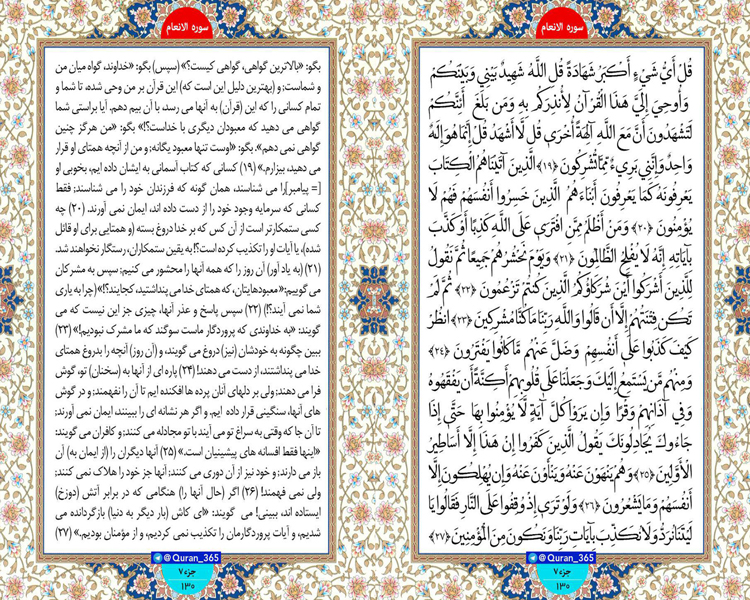 سوره الانعام
قُلْ أَيُّ شَيْءٍ أَكْبَرُ شَهَادَةً قُلِ اللَّهُ شَهِيدٌ بَيْنِي وَبَيْنَكُمْ
وَأُوحِيَ إِلَيَّ هَٰذَا الْقُرْآنُ لِأُنْذِرَكُمْ بِهِ وَمَنْ بَلَغَ أَئِنَّكُمْ
لَتَشْهَدُونَ أَنَّ مَعَ اللَّهِ آلِهَةً أُخْرَىٰ قُلْ لَا أَشْهَدُ قُلْ إِنَّمَا هُوَ إِلَٰهٌ
وَاحِدٌ وَإِنَّنِي بَرِيءٌ مِمَّا تُشْرِكُونَ ﴿١٩﴾ الَّذِينَ آتَيْنَاهُمُ الْكِتَابَ
يَعْرِفُونَهُ كَمَا يَعْرِفُونَ أَبْنَاءَهُمُ الَّذِينَ خَسِرُوا أَنْفُسَهُمْ فَهُمْ لَا
يُؤْمِنُونَ ﴿٢٠﴾ وَمَنْ أَظْلَمُ مِمَّنِ افْتَرَىٰ عَلَى اللَّهِ كَذِبًا أَوْ كَذَّبَ
بِآيَاتِهِ إِنَّهُ لَا يُفْلِحُ الظَّالِمُونَ ﴿٢١﴾ وَيَوْمَ نَحْشُرُهُمْ جَمِيعًا ثُمَّ نَقُولُ
لِلَّذِينَ أَشْرَكُوا أَيْنَ شُرَكَاؤُكُمُ الَّذِينَ كُنْتُمْ تَزْعُمُونَ ﴿٢٢﴾ ثُمَّ لَمْ
تَكُنْ فِتْنَتُهُمْ إِلَّا أَنْ قَالُوا وَاللَّهِ رَبِّنَا مَا كُنَّا مُشْرِكِينَ ﴿٢٣﴾ انْظُرْ
كَيْفَ كَذَبُوا عَلَىٰ أَنْفُسِهِمْ وَضَلَّ عَنْهُمْ مَا كَانُوا يَفْتَرُونَ ﴿٢٤﴾
وَمِنْهُمْ مَنْ يَسْتَمِعُ إِلَيْكَ وَجَعَلْنَا عَلَىٰ قُلُوبِهِمْ أَكِنَّةً أَنْ يَفْقَهُوهُ
وَفِي آذَانِهِمْ وَقْرًا وَإِنْ يَرَوْا كُلَّ آيَةٍ لَا يُؤْمِنُوا بِهَا حَتَّىٰ إِذَا
جَاءُوكَ يُجَادِلُونَكَ يَقُولُ الَّذِينَ كَفَرُوا إِنْ هَٰذَا إِلَّا أَسَاطِيرُ
الْأَوَّلِينَ ﴿٢٥﴾ وَهُمْ يَنْهَوْنَ عَنْهُ وَيَنْأَوْنَ عَنْهُ وَإِنْ يُهْلِكُونَ إِلَّا
أَنْفُسَهُمْ وَمَا يَشْعُرُونَ ﴿٢٦﴾ وَلَوْ تَرَىٰ إِذْ وُقِفُوا عَلَى النَّارِ فَقَالُوا يَا
لَيْتَنَا نُرَدُّ وَلَا نُكَذِّبَ بِآيَاتِ رَبِّنَا وَنَكُونَ مِنَ الْمُؤْمِنِينَ ﴿٢٧﴾
@Quran_365
جزء ۷
۱۳۰
سوره الانعام
بگو: «بالاترین گواهی، گواهی کیست؟» (سپس) بگو: «خداوند، گواه میان من
و شماست؛ و (بهترین دلیل این است که) این قرآن بر من وحی شده، تا شما و
تمام کسانی را که این (قرآن) به آنها می رسد، با آن بیم دهم. آیا براستی شما
گواهی می دهید که معبودان دیگری با خداست؟!» بگو: «من هرگز چنین
گواهی نمی دهم». بگو: «اوست تنها معبود یگانه؛ و من از آنچه همتای او قرار
می دهید، بیزارم.» (۱۹) کسانی که کتاب آسمانی به ایشان داده ایم، بخوبی او
[= پیامبر]را می شناسند، همان گونه که فرزندان خود را می شناسند؛ فقط
کسانی که سرمایه وجود خود را از دست داده اند، ایمان نمی آورند. (۲۰) چه
کسی ستمکارتر است از آن کس که بر خدا دروغ بسته (و همتایی برای او قائل
شده)، یا آیات او را تکذیب کرده است؟! به یقین ستمکاران، رستگار نخواهند شد.
(۲۱) (به یاد آور) آن روز را که همه آنها را محشور می کنیم؛ سپس به مشرکان
می گوییم: «معبودهایتان، که همتای خدا می پنداشتید، کجایند؟!» (چرا به یاری
شما نمی آیند؟!) (۲۲) سپس پاسخ و عذر آنها، چیزی جز این نیست که می
گویند: «به خداوندی که پروردگار ماست سوگند که ما مشرک نبودیم!» (۲۳)
ببین چگونه به خودشان (نیز) دروغ می گویند، و (آن روز) آنچه را بدروغ همتای
خدا می پنداشتند، از دست می دهند! (۲۴) پاره ای از آنها به (سخنان) تو، گوش
فرا می دهند؛ ولی بر دلهای آنان پرده ها افکنده ایم تا آن را نفهمند؛ و در گوش
های آنها، سنگینی قرار داده ایم. و اگر هر نشانه ای را ببینند، ایمان نمی آورند؛
تا آن جا که وقتی به سراغ تو می آیند با تو مجادله می کنند؛ و کافران می گویند:
«اینها فقط افسانه های پیشینیان است.» (۲۵) آنها دیگران را (از ایمان به) آن
باز می دارند؛ و خود نیز از آن دوری می کنند؛ آنها جز خود را هلاک نمی کنند؛
ولی نمی فهمند! (۲۶) اگر (حال آنها را) هنگامی که در برابر آتش (دوزخ)
ایستاده اند، ببینی! می گویند: «ای کاش (بار دیگر به دنیا) بازگردانده می
شدیم، و آیات پروردگارمان را تکذیب نمی کردیم، و از مؤمنان بودیم.» (۲۷)
@Quran_365
جزء ۷
۱۳۰